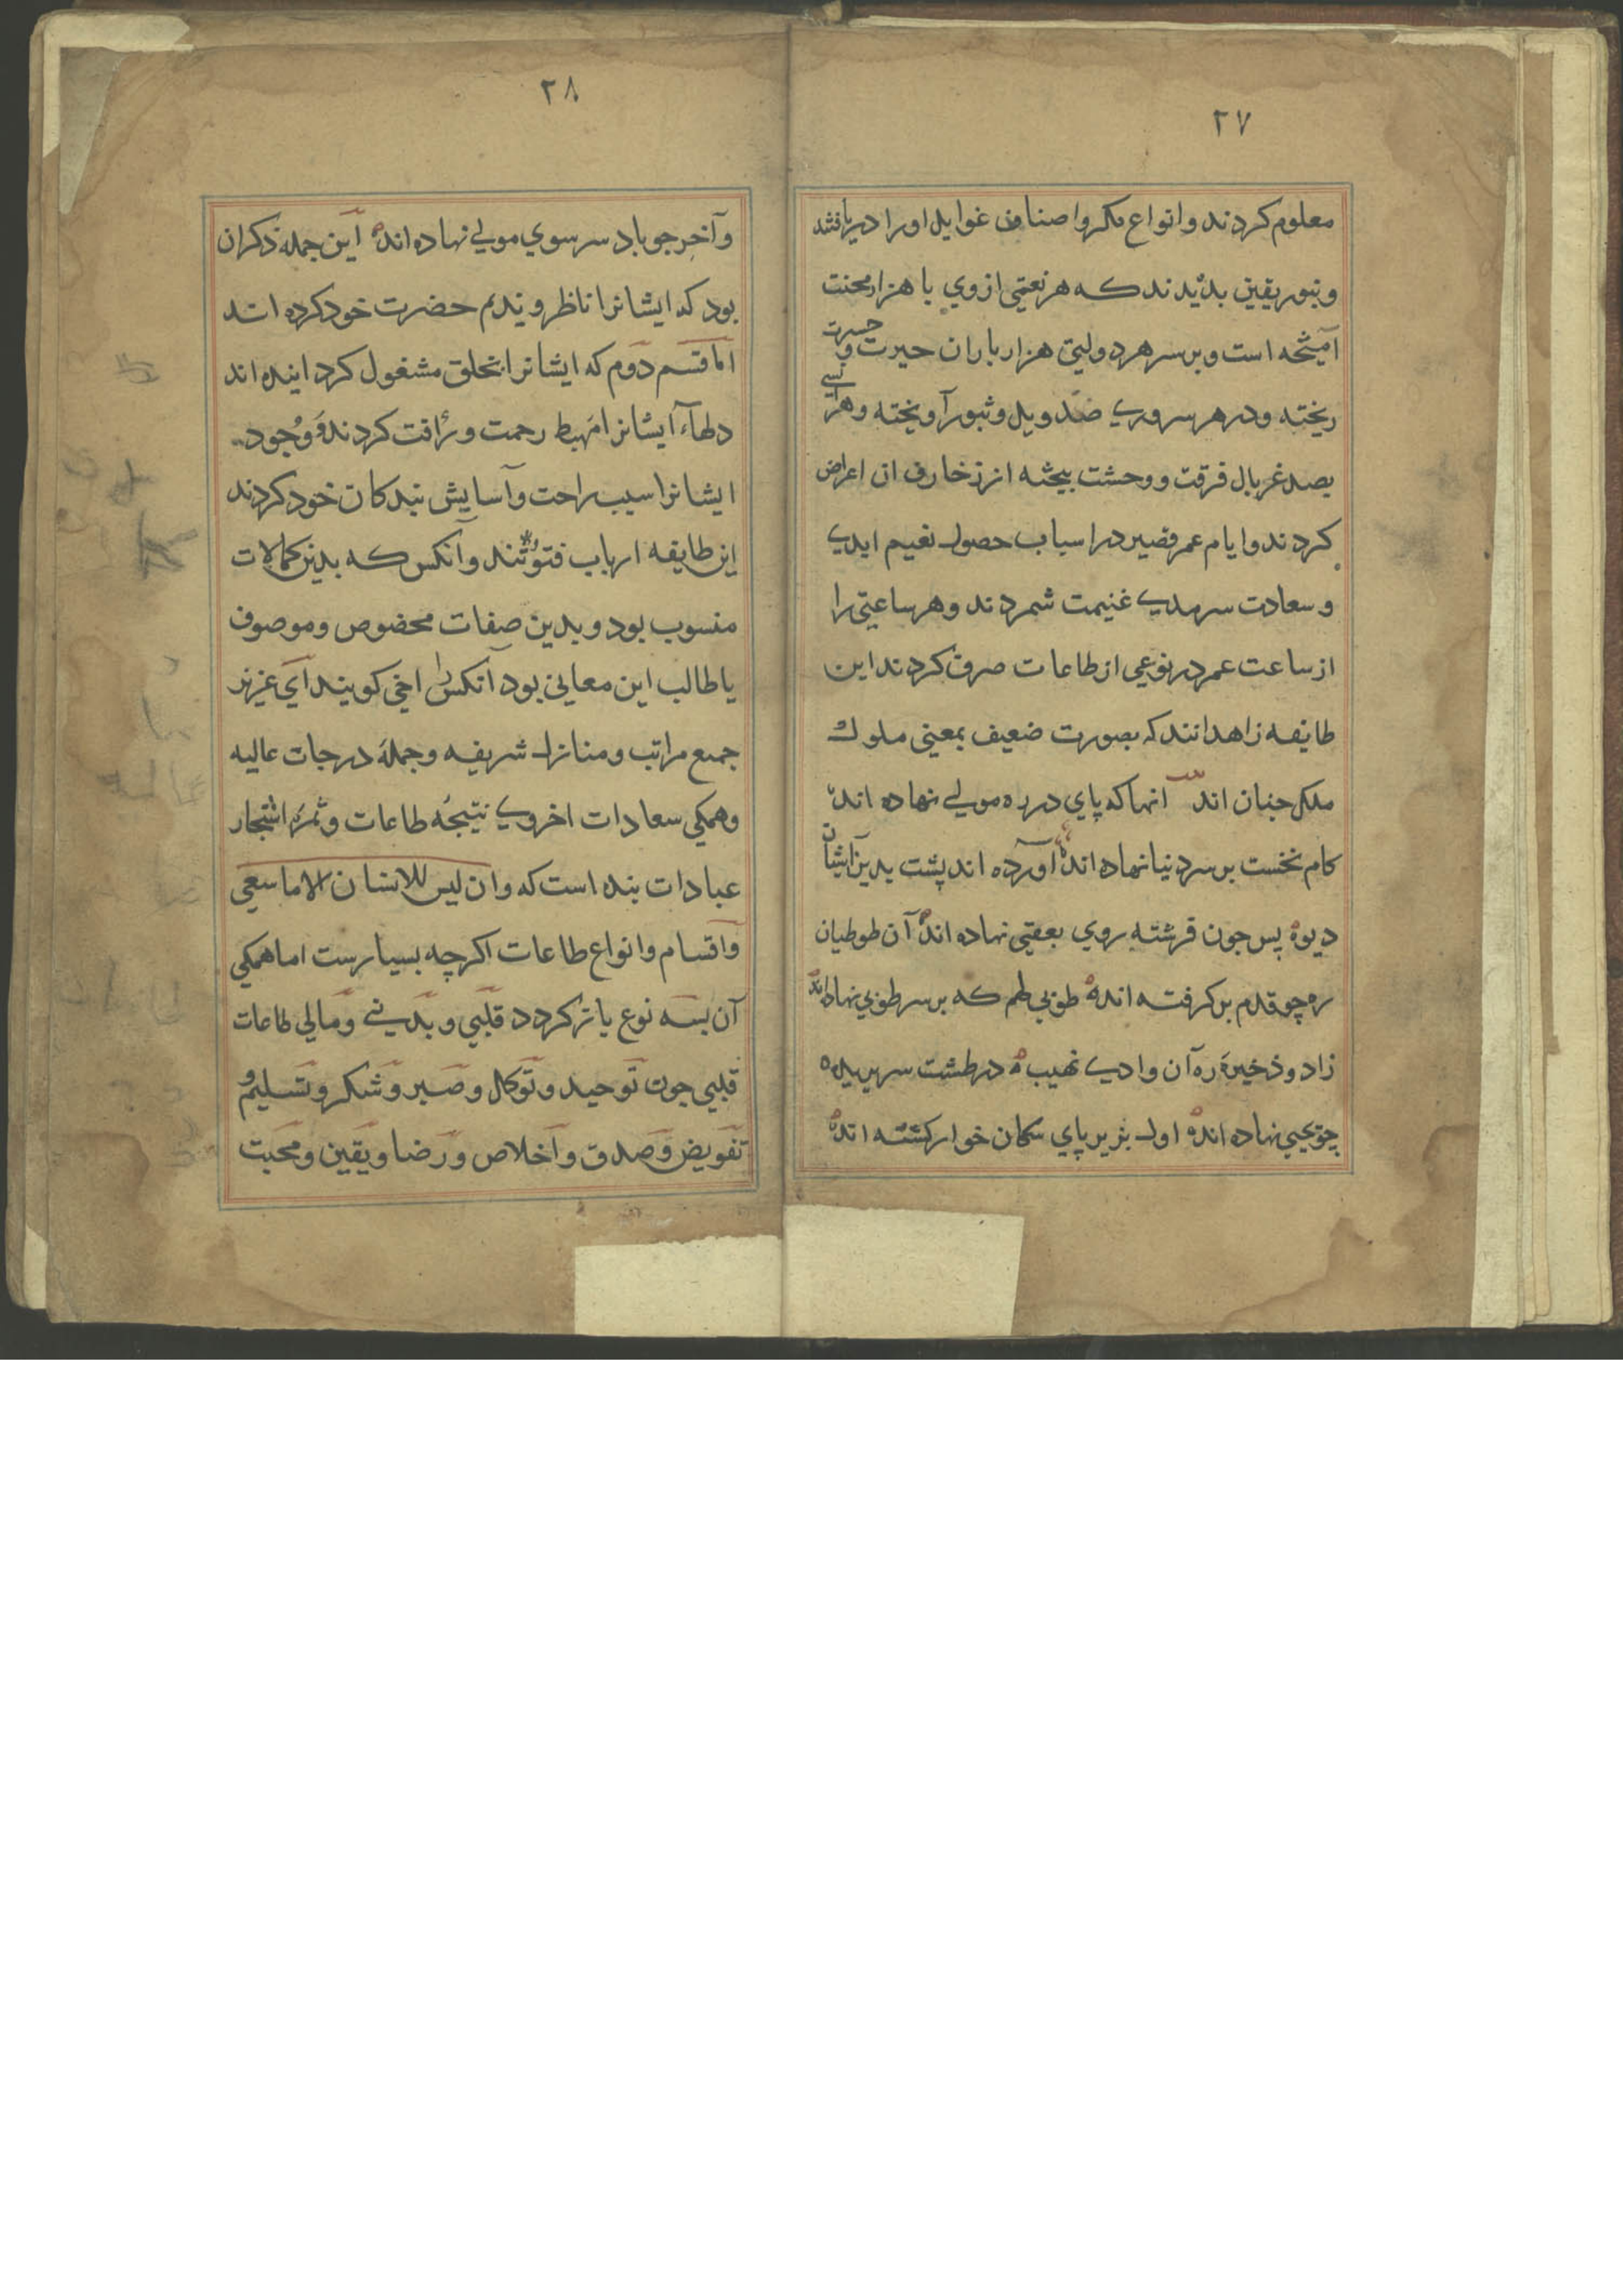 ۲۷
معلوم کردند و انواع مکر و اصناف غوایل او را دریافتند
و بنور یقین بدیدند که هر نعمتی از وي با هزار محنت
آمیخته است و بر سر هر دولتی هزار باران حیرت و حسرت
ریخته و در هر سروری صد ویل و ثبور آویخته و هر انسی
بصد غربال فرقت و وحشت بیخته از زخارف ان اعراض
کردند و ایام عمر قصیر در اسباب حصول نعیم ابدی
و سعادت سرمدی غنیمت شمردند و هر ساعتی را
از ساعت عمر در نوعی از طاعات صرف کردند این
طایفه زاهدانند که بصورت ضعیف بمعنی ملوك
ملک جنان اند انها که پاي در ره مولی نهاده اند
کام نخست بر سر دنیا نهاده اند آورده اند پشت بدین ایشان
دیوه پس جون فرشته روي بعقبی نهاده اند آن طوطیان
ره چو قدم بر کرفته اند طوبی لهم که بر سر طوبی نهاده اند
زاد و ذخیرۀ ره آن وادی نهیب در طشت سر بریده
چو یحیی نهاده اند اول بزیر پاي سکان خوار کشته اند
۲۸
و آخر جو باد سر سوي مولی نهاده اند این جمله ذکر آن
بود که ایشانرا ناظر و ندیم حضرت خود کرده اند
اما قسم دوم که ایشانرا بخلق مشغول کردانیده اند
دلهاء ایشانرا مهبط رحمت و رأفت کردند و وجود
ایشانرا سبب راحت و آسایش بندکان خود کردند
این طایفه ارباب فتوتند و آنکس که بدین کمالات
منسوب بود و بدین صفات مخصوص و موصوف
یا طالب این معانی بود آنکس را اخی کویند ای عزیز
جمیع مراتب و منازل شریفه و جملۀ درجات عالیه
و همکی سعادات اخروی نتیجۀ طاعات و ثمرۀ اشجار
عبادات بنده است که وان لیس للانسان الا ما سعی
و اقسام و انواع طاعات اکرچه بسیارست اما همکی
آن بسه نوع باز کردد قلبی و بدنی و مالی طاعات
قلبی جون توحید و توکل و صبر و شکر و تسلیم و
تفویض و صدق و اخلاص و رضا و یقین و محبت